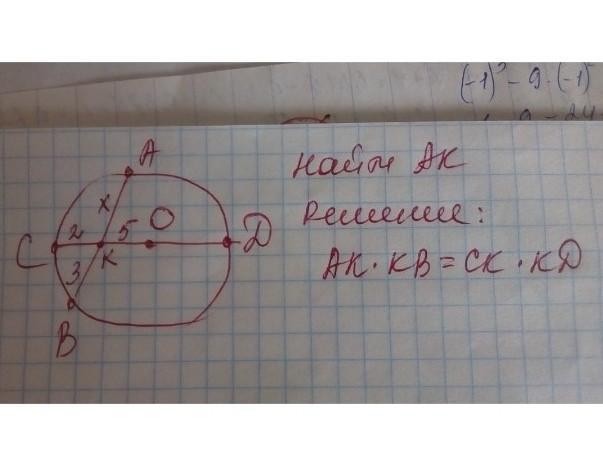 (-1)³ - 9 · (-1)
A
Найти AK
x
O
Решение:
C
2
5
D
K
AK · KB = CK · KD
3
B